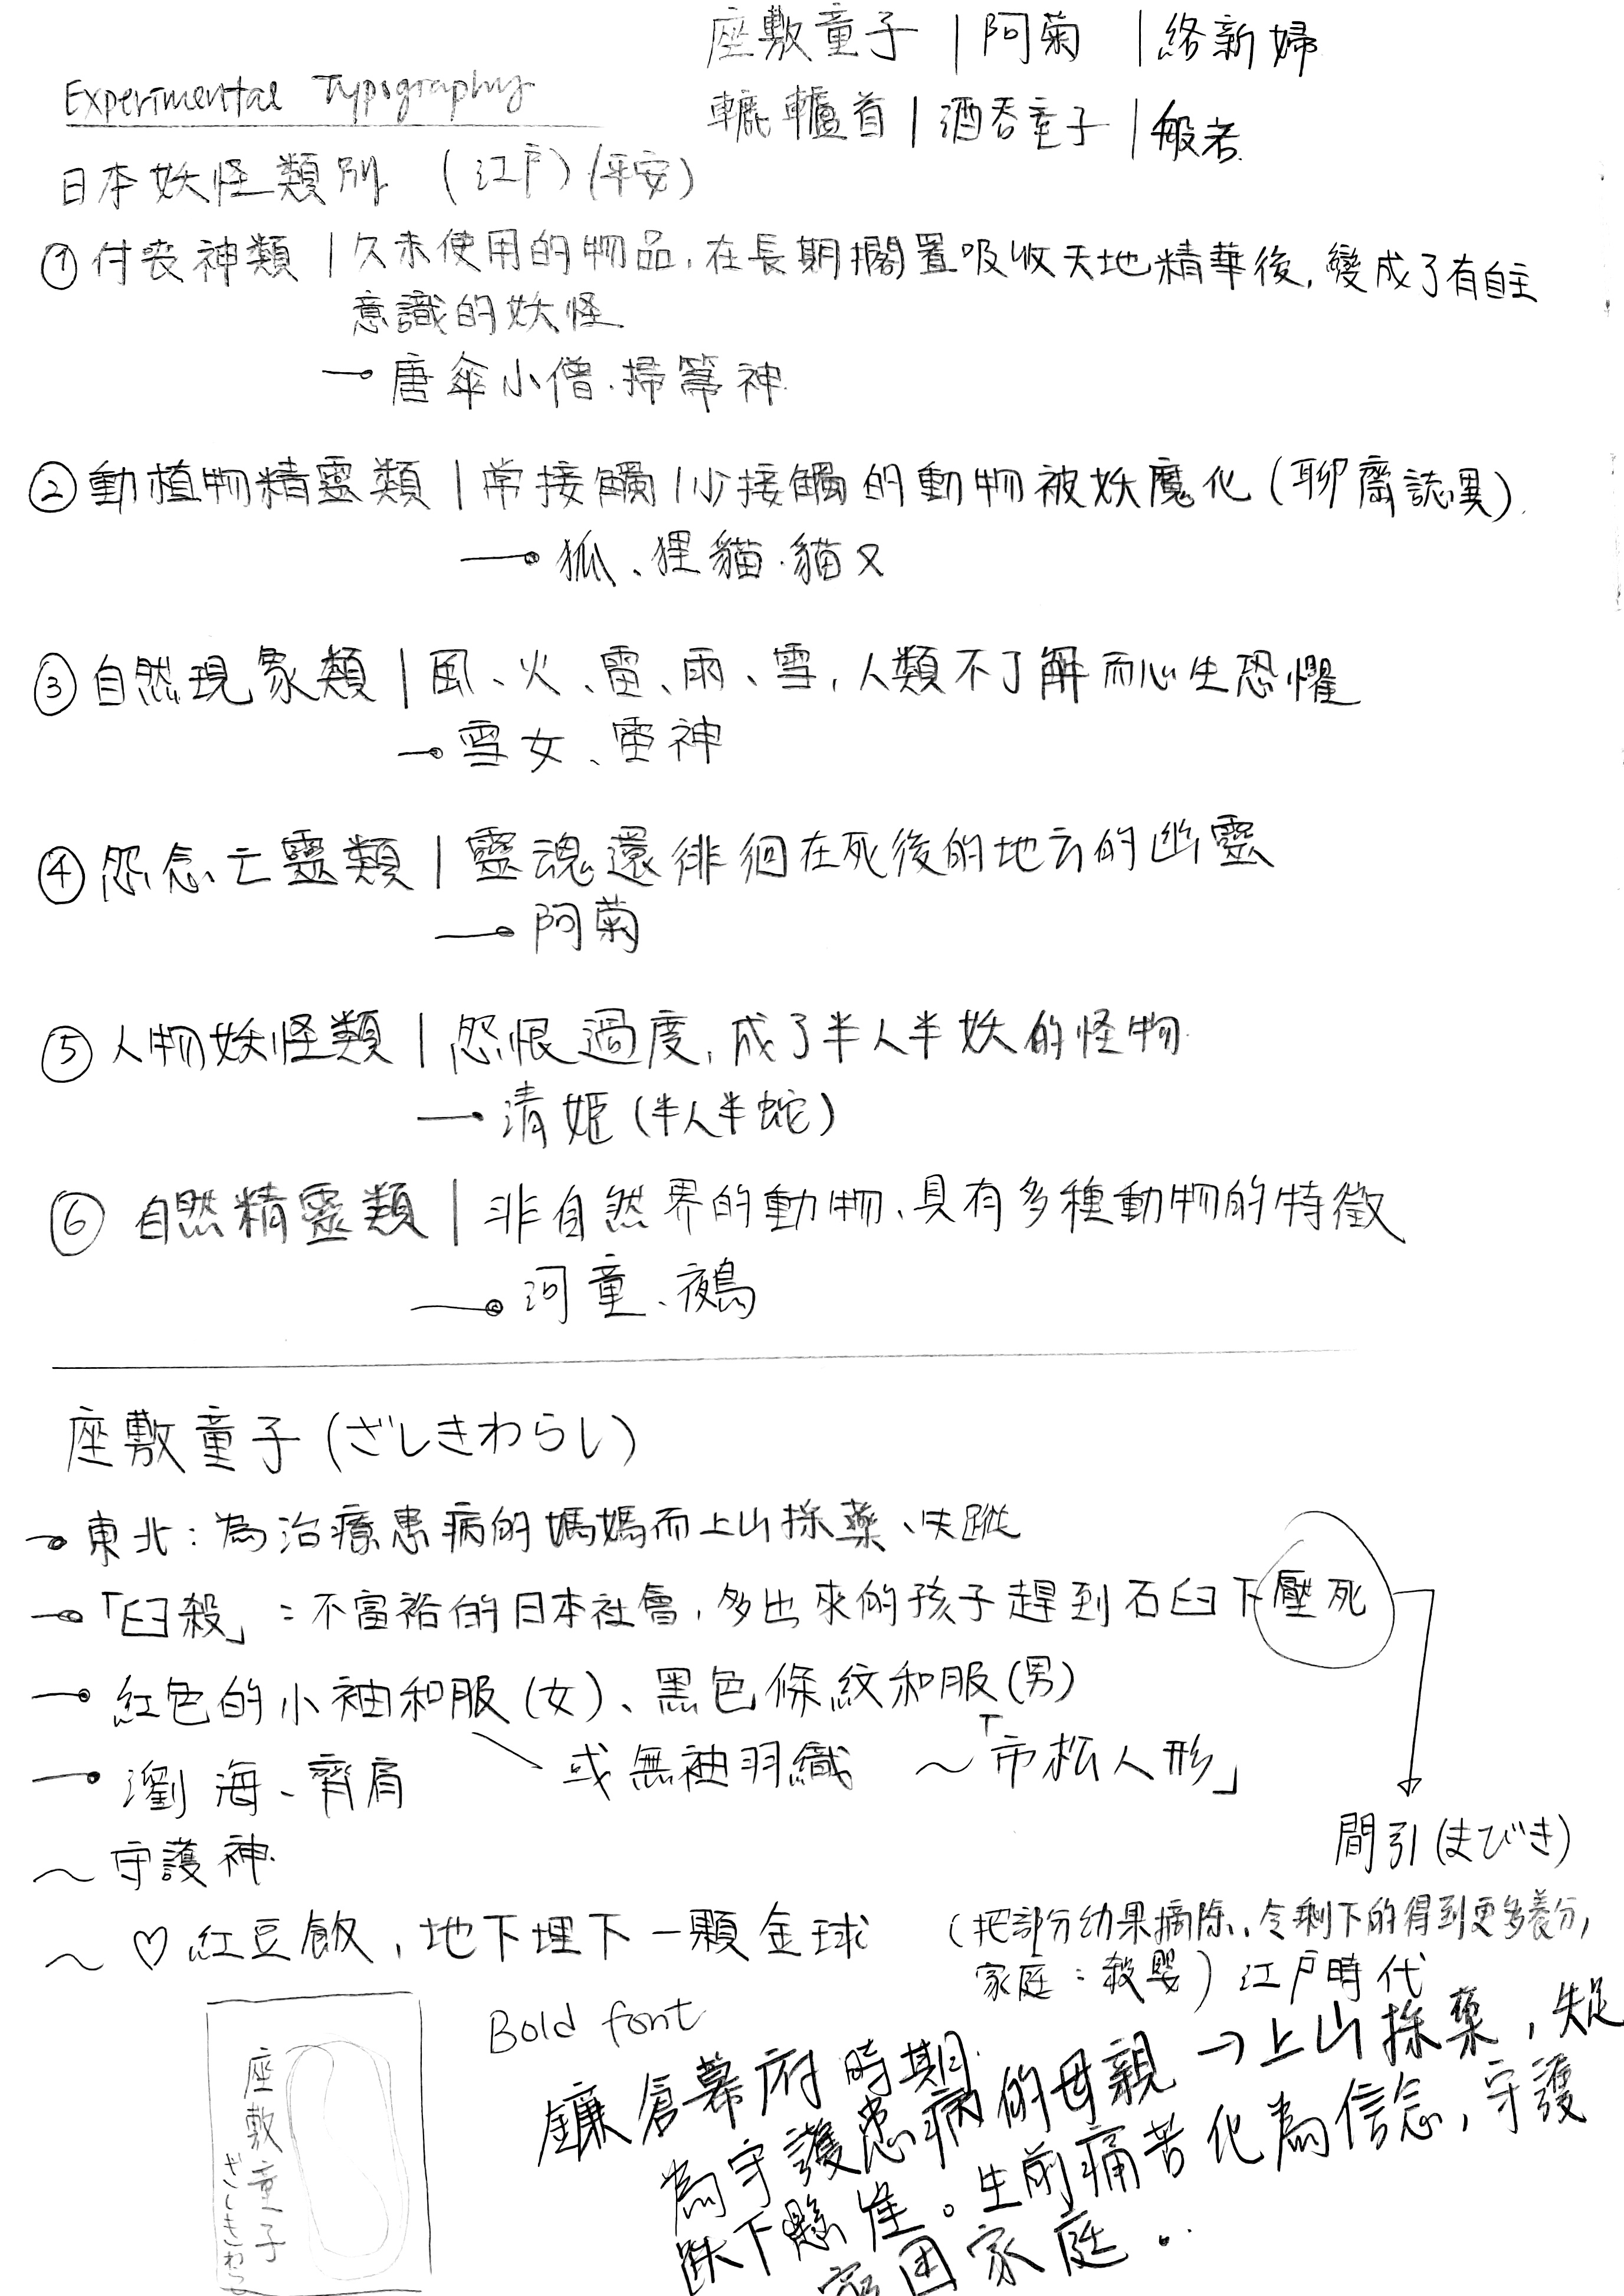 Experimental Typography
座敷童子 | 阿菊 | 絡新婦
轆轤首 | 酒吞童子 | 般若
日本妖怪類別 (江戶) (平安)
① 付喪神類 | 久未使用的物品,在長期擱置吸收天地精華後,變成了有自主
意識的妖怪
→ 唐傘小僧.掃箒神.
② 動植物精靈類 | 常接觸 | 少接觸的動物被妖魔化 (聊齋誌異).
→ 狐、狸貓.貓又
③ 自然現象類 | 風、火、雷、雨、雪,人類不了解而心生恐懼
→ 雪女、雷神
④ 怨念亡靈類 | 靈魂還徘徊在死後的地方的幽靈
→ 阿菊
⑤ 人物妖怪類 | 怨恨過度,成了半人半妖的怪物.
→ 清姬 (半人半蛇)
⑥ 自然精靈類 | 非自然界的動物、具有多種動物的特徵
→ 河童、鵺
座敷童子 (ざしきわらし)
→ 東北:為治療患病的媽媽而上山採藥、失蹤
→「臼殺」:不富裕的日本社會,多出來的孩子趕到石臼下壓死
→ 紅色的小袖和服 (女)、黑色條紋和服 (男)
或無袖羽織 ~「市松人形」
→ 瀏海、齊肩
~ 守護神.
間引 (まびき)
(把部分幼果摘除,令剩下的得到更多養分,
家庭:殺嬰) 江戶時代
~ ♡ 紅豆飯,地下埋下一顆金球
Bold font
座敷童子
ざしきわら
鐮倉幕府時期
為守護患病的母親 → 上山採藥,失足
跌下懸崖。生前痛苦化為信念,守護
家庭.